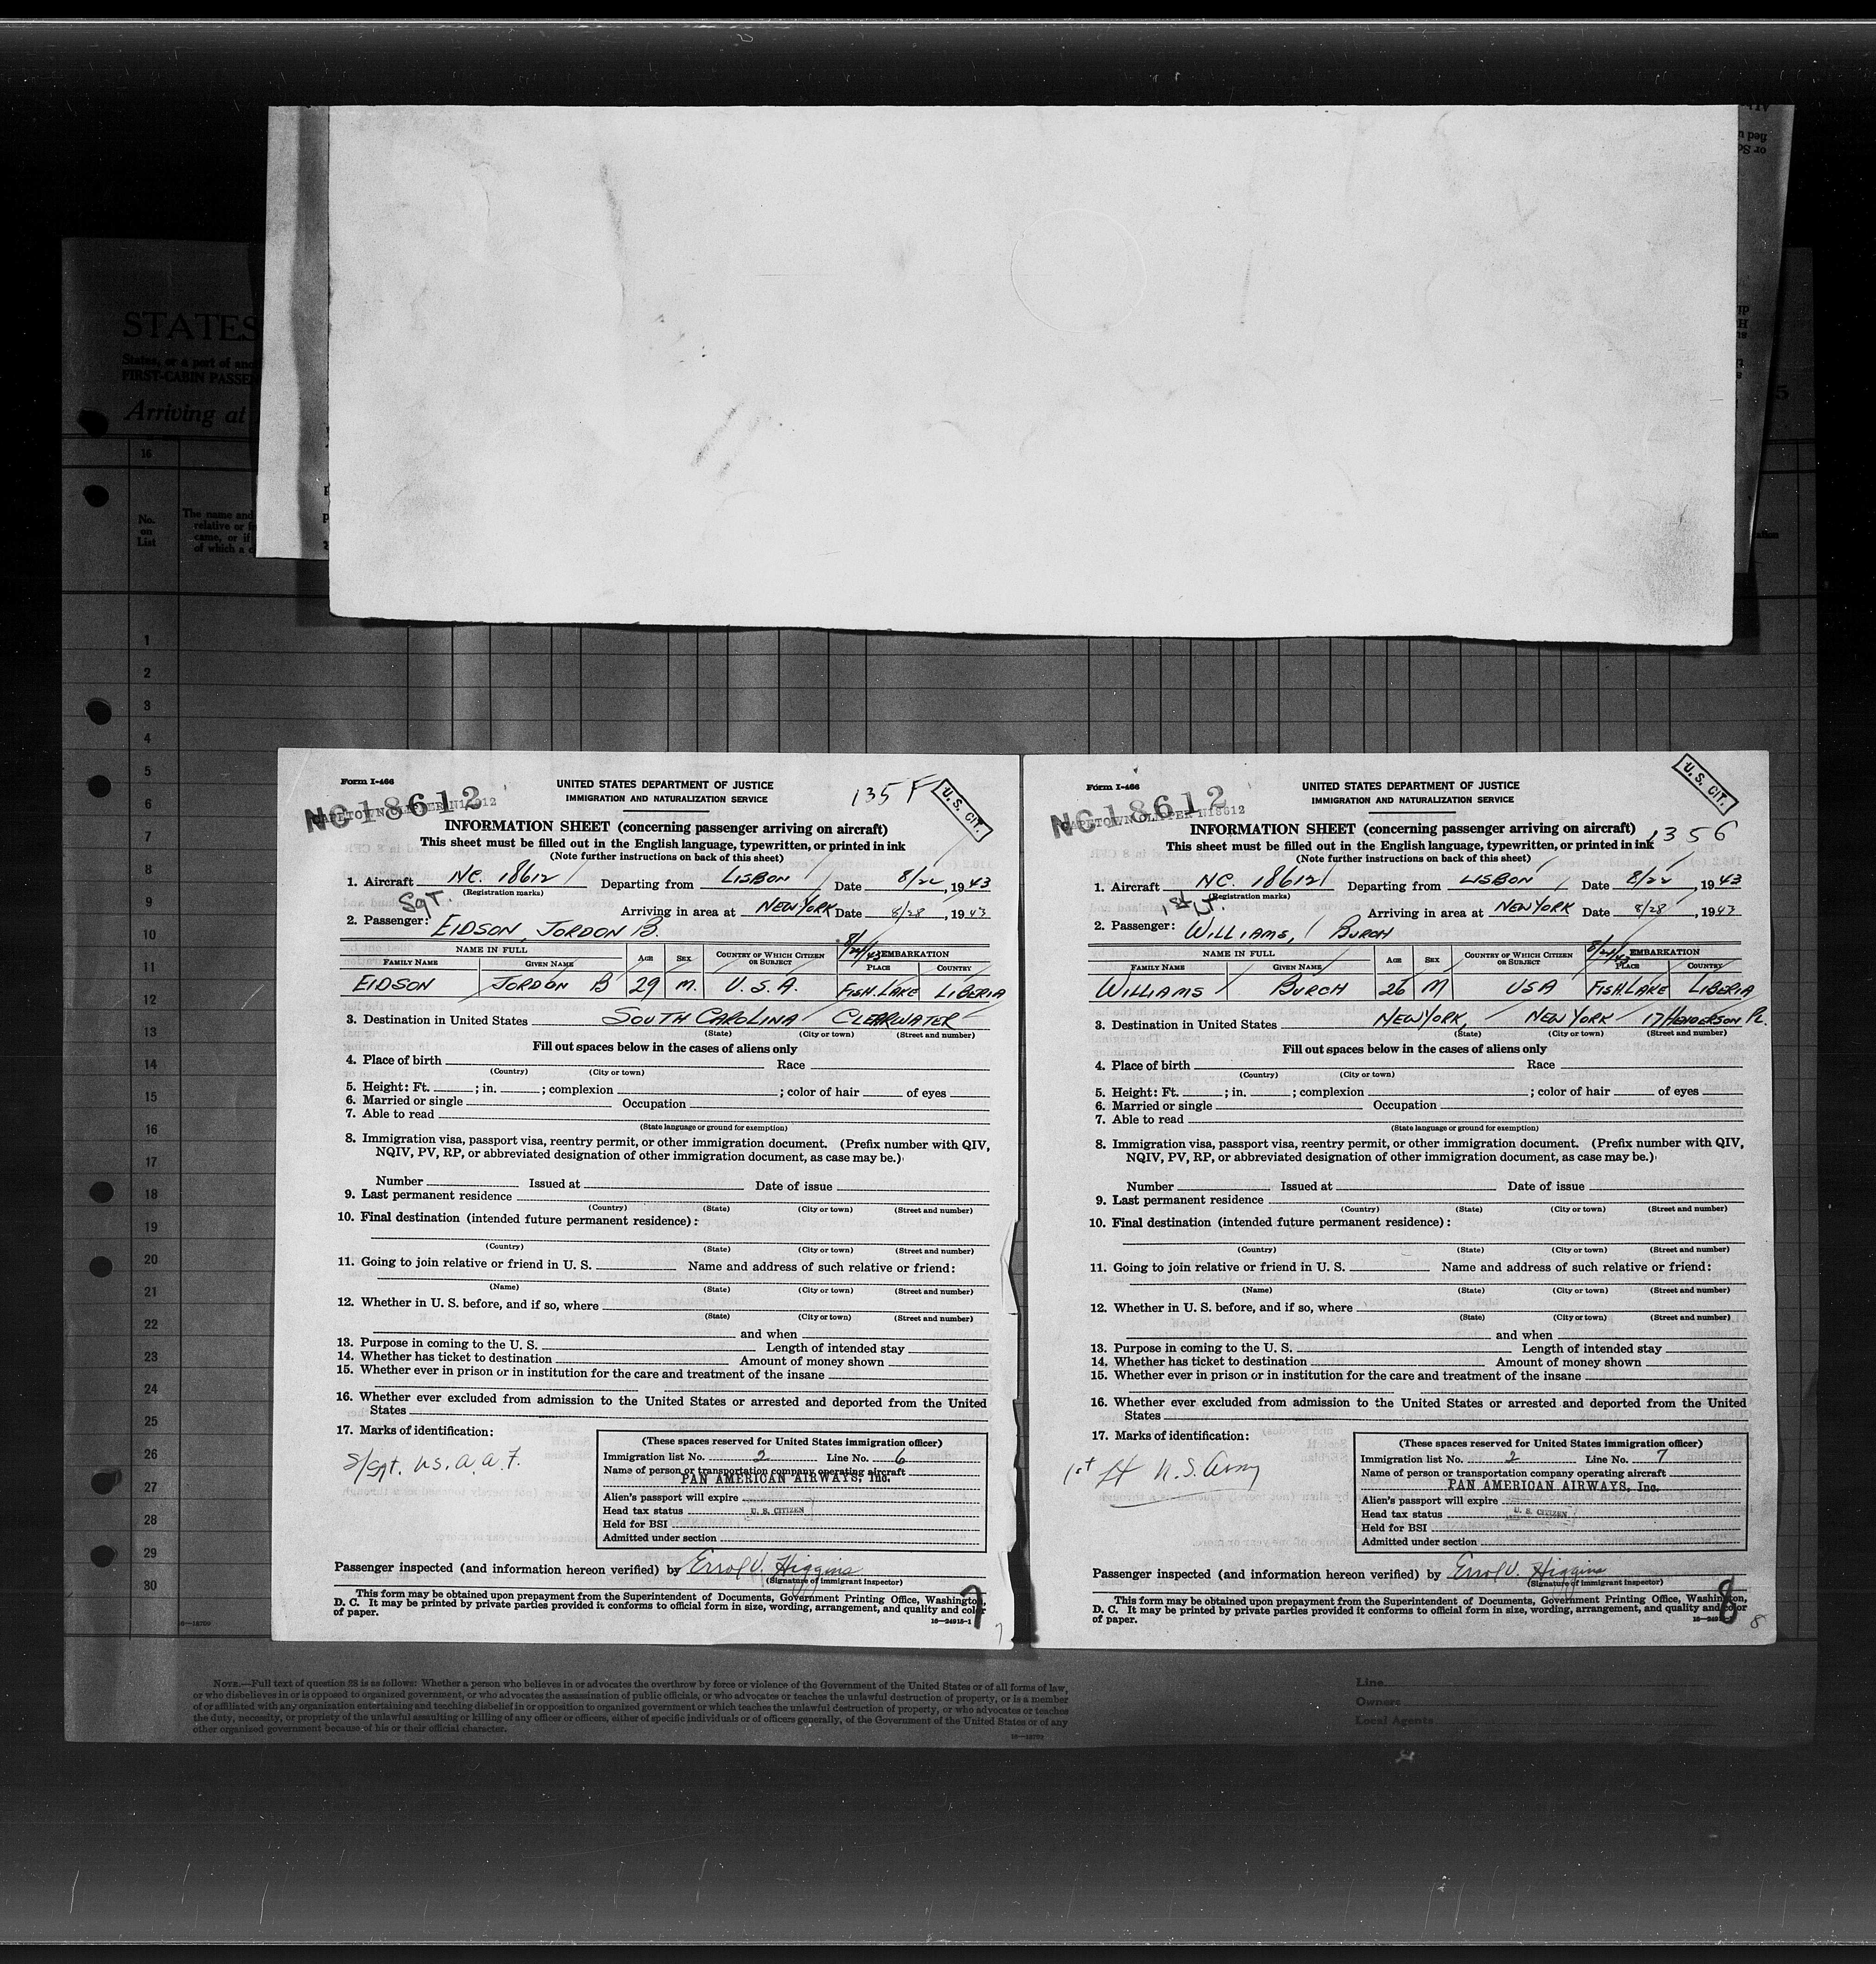 STATES
States, or a port of
FIRST-CABIN
Arriving at
16
No.
on
List
The name and
relative or
came, or if
of which a
1
2
3
4
5
6
7
8
9
10
11
12
13
14
15
16
17
18
19
20
21
22
23
24
25
26
27
28
29
30
Form I-466
UNITED STATES DEPARTMENT OF JUSTICE
IMMIGRATION AND NATURALIZATION SERVICE
135 F
U. S. CIT.
NC18612
INFORMATION SHEET (concerning passenger arriving on aircraft)
This sheet must be filled out in the English language, typewritten, or printed in ink
(Note further instructions on back of this sheet)
1. Aircraft NC. 18612 Departing from LISBON Date 8/22, 1943
(Registration marks)
Sgt.
Arriving in area at NEW YORK Date 8/28, 1943
2. Passenger: EIDSON, JORDON B.
NAME IN FULL AGE SEX COUNTRY OF WHICH CITIZEN OR SUBJECT 8/24/43 EMBARKATION
FAMILY NAME GIVEN NAME PLACE COUNTRY
EIDSON JORDON B 29 M. U.S.A. FISH.LAKE LIBERIA
3. Destination in United States SOUTH CAROLINA CLEARWATER
(State) (City or town) (Street and number)
Fill out spaces below in the cases of aliens only
4. Place of birth Race
(Country) (City or town)
5. Height: Ft. ; in. ; complexion ; color of hair of eyes
6. Married or single Occupation
7. Able to read
(State language or ground for exemption)
8. Immigration visa, passport visa, reentry permit, or other immigration document. (Prefix number with QIV,
NQIV, PV, RP, or abbreviated designation of other immigration document, as case may be.)
Number Issued at Date of issue
9. Last permanent residence
(Country) (State) (City or town) (Street and number)
10. Final destination (intended future permanent residence):
(Country) (State) (City or town) (Street and number)
11. Going to join relative or friend in U. S. Name and address of such relative or friend:
(Name) (State) (City or town) (Street and number)
12. Whether in U. S. before, and if so, where
(State) (City or town) (Street and number)
and when
13. Purpose in coming to the U. S. Length of intended stay
14. Whether has ticket to destination Amount of money shown
15. Whether ever in prison or in institution for the care and treatment of the insane
16. Whether ever excluded from admission to the United States or arrested and deported from the United
States
17. Marks of identification:
S/Sgt. U.S.A.A.F.
(These spaces reserved for United States immigration officer)
Immigration list No. 2 Line No. 6
Name of person or transportation company operating aircraft
PAN AMERICAN AIRWAYS, Inc.
Alien's passport will expire
Head tax status U. S. CITIZEN
Held for BSI
Admitted under section
Passenger inspected (and information hereon verified) by Errol V. Higgins
(Signature of immigrant inspector)
This form may be obtained upon prepayment from the Superintendent of Documents, Government Printing Office, Washington,
D. C. It may be printed by private parties provided it conforms to official form in size, wording, arrangement, and quality and color
of paper.
16—24915-1
7
7
Form I-466
UNITED STATES DEPARTMENT OF JUSTICE
IMMIGRATION AND NATURALIZATION SERVICE
U. S. CIT.
NC18612
CAPETOWN CLIPPER N18612
INFORMATION SHEET (concerning passenger arriving on aircraft)
1356
This sheet must be filled out in the English language, typewritten, or printed in ink
(Note further instructions on back of this sheet)
1. Aircraft NC. 18612 Departing from LISBON Date 8/22, 1943
(Registration marks)
1st Lt.
Arriving in area at NEW YORK Date 8/28, 1943
2. Passenger: WILLIAMS, BURCH
NAME IN FULL AGE SEX COUNTRY OF WHICH CITIZEN OR SUBJECT 8/24/43 EMBARKATION
FAMILY NAME GIVEN NAME PLACE COUNTRY
WILLIAMS BURCH 26 M USA FISH.LAKE LIBERIA
3. Destination in United States NEW YORK, NEW YORK 17 HENDERSON PL.
(State) (City or town) (Street and number)
Fill out spaces below in the cases of aliens only
4. Place of birth Race
(Country) (City or town)
5. Height: Ft. ; in. ; complexion ; color of hair of eyes
6. Married or single Occupation
7. Able to read
(State language or ground for exemption)
8. Immigration visa, passport visa, reentry permit, or other immigration document. (Prefix number with QIV,
NQIV, PV, RP, or abbreviated designation of other immigration document, as case may be.)
Number Issued at Date of issue
9. Last permanent residence
(Country) (State) (City or town) (Street and number)
10. Final destination (intended future permanent residence):
(Country) (State) (City or town) (Street and number)
11. Going to join relative or friend in U. S. Name and address of such relative or friend:
(Name) (State) (City or town) (Street and number)
12. Whether in U. S. before, and if so, where
(State) (City or town) (Street and number)
and when
13. Purpose in coming to the U. S. Length of intended stay
14. Whether has ticket to destination Amount of money shown
15. Whether ever in prison or in institution for the care and treatment of the insane
16. Whether ever excluded from admission to the United States or arrested and deported from the United
States
17. Marks of identification:
1st Lt U.S. Army
(These spaces reserved for United States immigration officer)
Immigration list No. 2 Line No. 7
Name of person or transportation company operating aircraft
PAN AMERICAN AIRWAYS, Inc.
Alien's passport will expire
Head tax status U. S. CITIZEN
Held for BSI
Admitted under section
Passenger inspected (and information hereon verified) by Errol V. Higgins
(Signature of immigrant inspector)
This form may be obtained upon prepayment from the Superintendent of Documents, Government Printing Office, Washington,
D. C. It may be printed by private parties provided it conforms to official form in size, wording, arrangement, and quality and color
of paper.
8
8
NOTE.—Full text of question 28 is as follows: Whether a person who believes in or advocates the overthrow by force or violence of the Government of the United States or of all forms of law,
or who disbelieves in or is opposed to organized government, or who advocates the assassination of public officials, or who advocates or teaches the unlawful destruction of property, or is a member
of or affiliated with any organization entertaining and teaching disbelief in or opposition to organized government or which teaches the unlawful destruction of property, or who advocates or teaches
the duty, necessity, or propriety of the unlawful assaulting or killing of any officer or officers, either of specific individuals or of officers generally, of the Government of the United States or of any
other organized government because of his or their official character.
Line
Owners
Local Agents